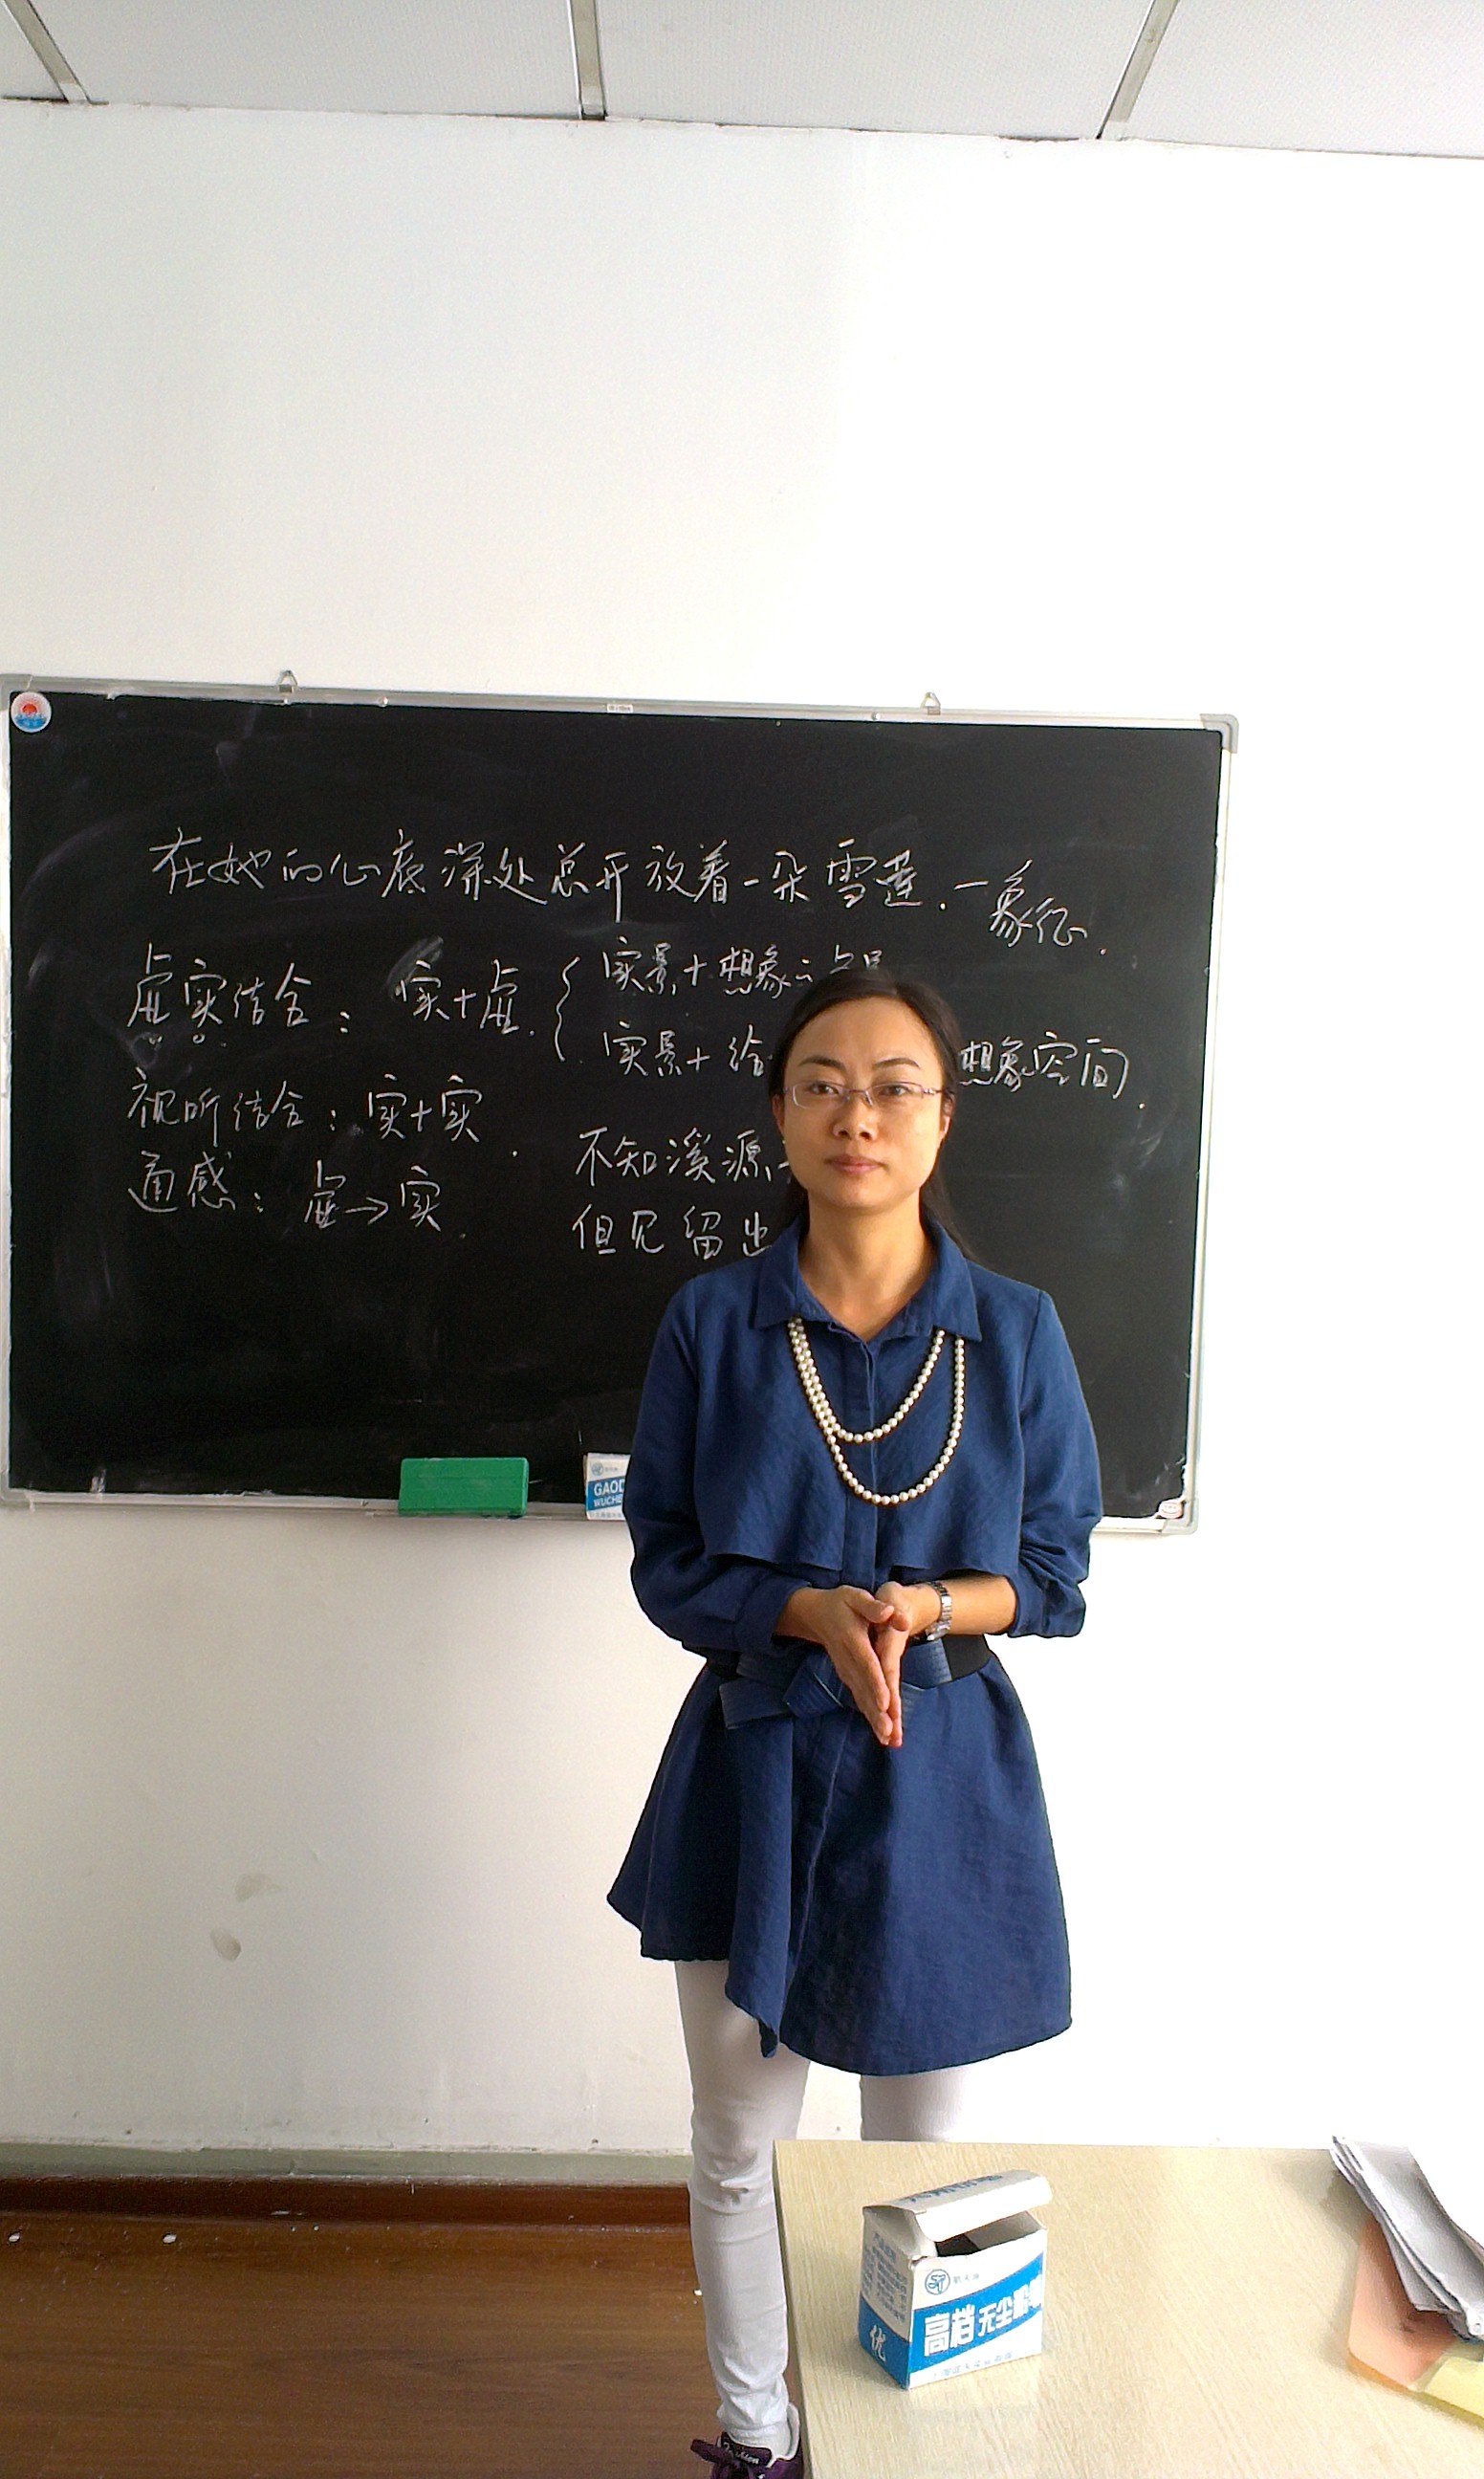 在她的心底深处总开放着一朵雪莲.—象征.
虚实结合: 实+虚. { 实景+想象之
实景+给 想象空间.
视听结合: 实+实.
通感: 虚→实.
不知溪源
但见留出
GAOD
WUCHE
高档 无尘
优